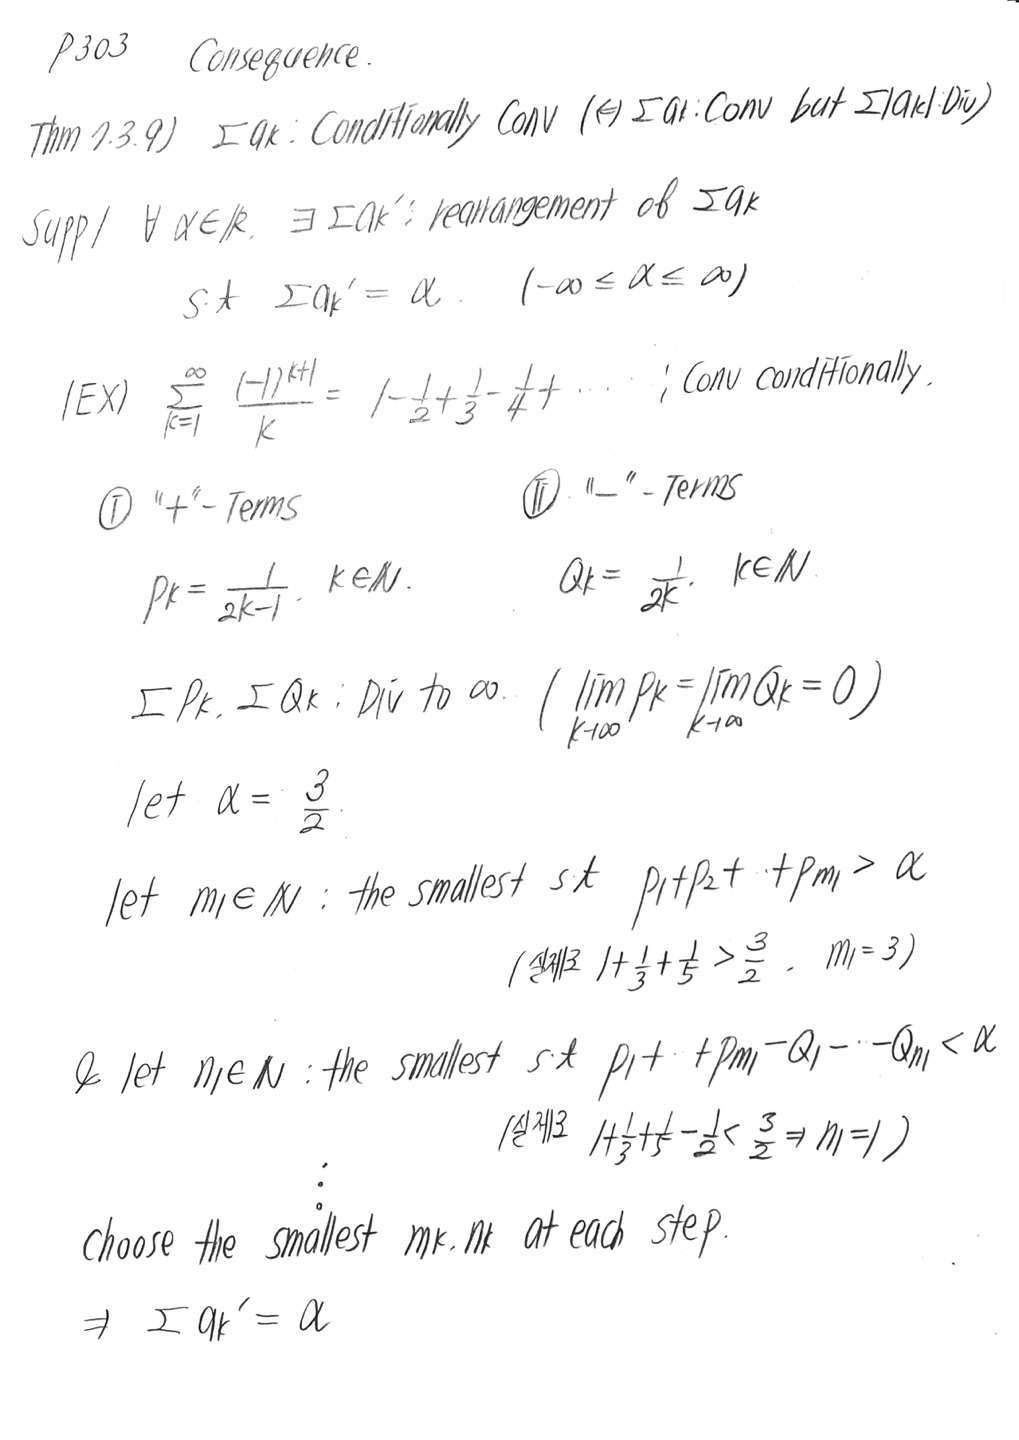 P303 Consequence.
Thm 7.3.9) Σak : Conditionally Conv (⇔ Σak : Conv but Σ|ak| : Div)
Supp/ ∀ α∈ℝ. ∃ Σak' : rearrangement of Σak
s.t Σak' = α. (-∞ ≤ α ≤ ∞)
/EX) ∞Σk=1 (-1)^{k+1}/k = 1-1/2+1/3-1/4+ ···· ; Conv conditionally.
Ⓘ "+"-Terms Ⓘ̄Ⓘ "_"-Terms
Pk = 1/(2k-1). k∈ℕ. Qk = 1/2k. k∈ℕ.
ΣPk. ΣQk : Div to ∞. ( lim k→∞ Pk = lim k→∞ Qk = 0 )
let α = 3/2.
let m1∈ℕ : the smallest s.t P1+P2+ ·· +Pm1 > α
(실제로 1+1/3+1/5 > 3/2. m1=3)
& let n1∈ℕ : the smallest s.t P1+ ·· +Pm1-Q1- ·· -Qn1 < α
(실제로 1+1/3+1/5-1/2 < 3/2 ⇒ n1=1)
⋮
choose the smallest mk. nk at each step.
⇒ Σak' = α